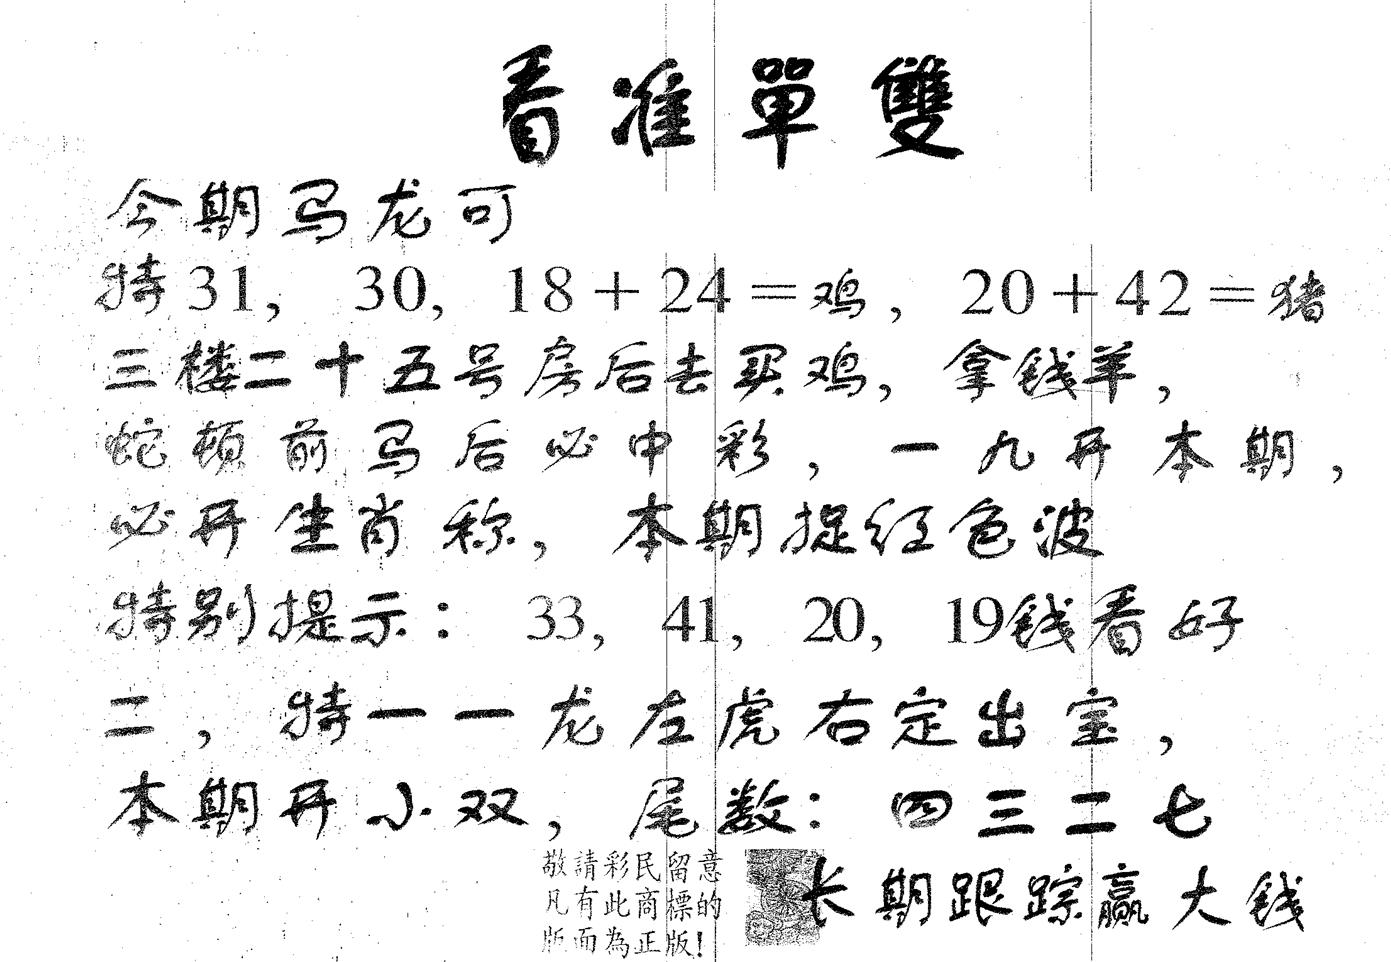 看准單雙
今期马龙可
特31，30，18＋24＝鸡，20＋42＝猪
三楼二十五号房后去买鸡，拿钱羊，
蛇顿前马后必中彩，一九开本期，
必开生肖称，本期捉红色波
特别提示：33，41，20，19钱看好
二，特一一龙左虎右定出宝，
本期开小双，尾数：四三二七
敬請彩民留意
凡有此商標的
版面為正版！
长期跟踪赢大钱